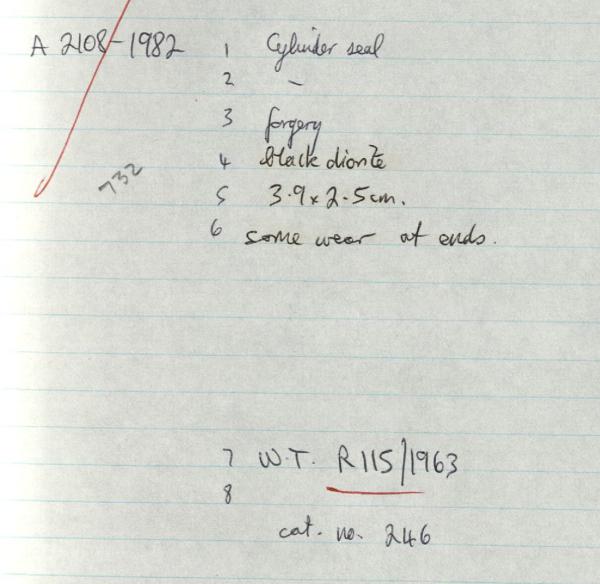 A 2108-1982 1 Cylinder seal
2 –
3 forgery
732
4 black diorite
5 3.9 x 2.5 cm.
6 some wear at ends.
7 W.T. R115/1963
8
cat. no. 246